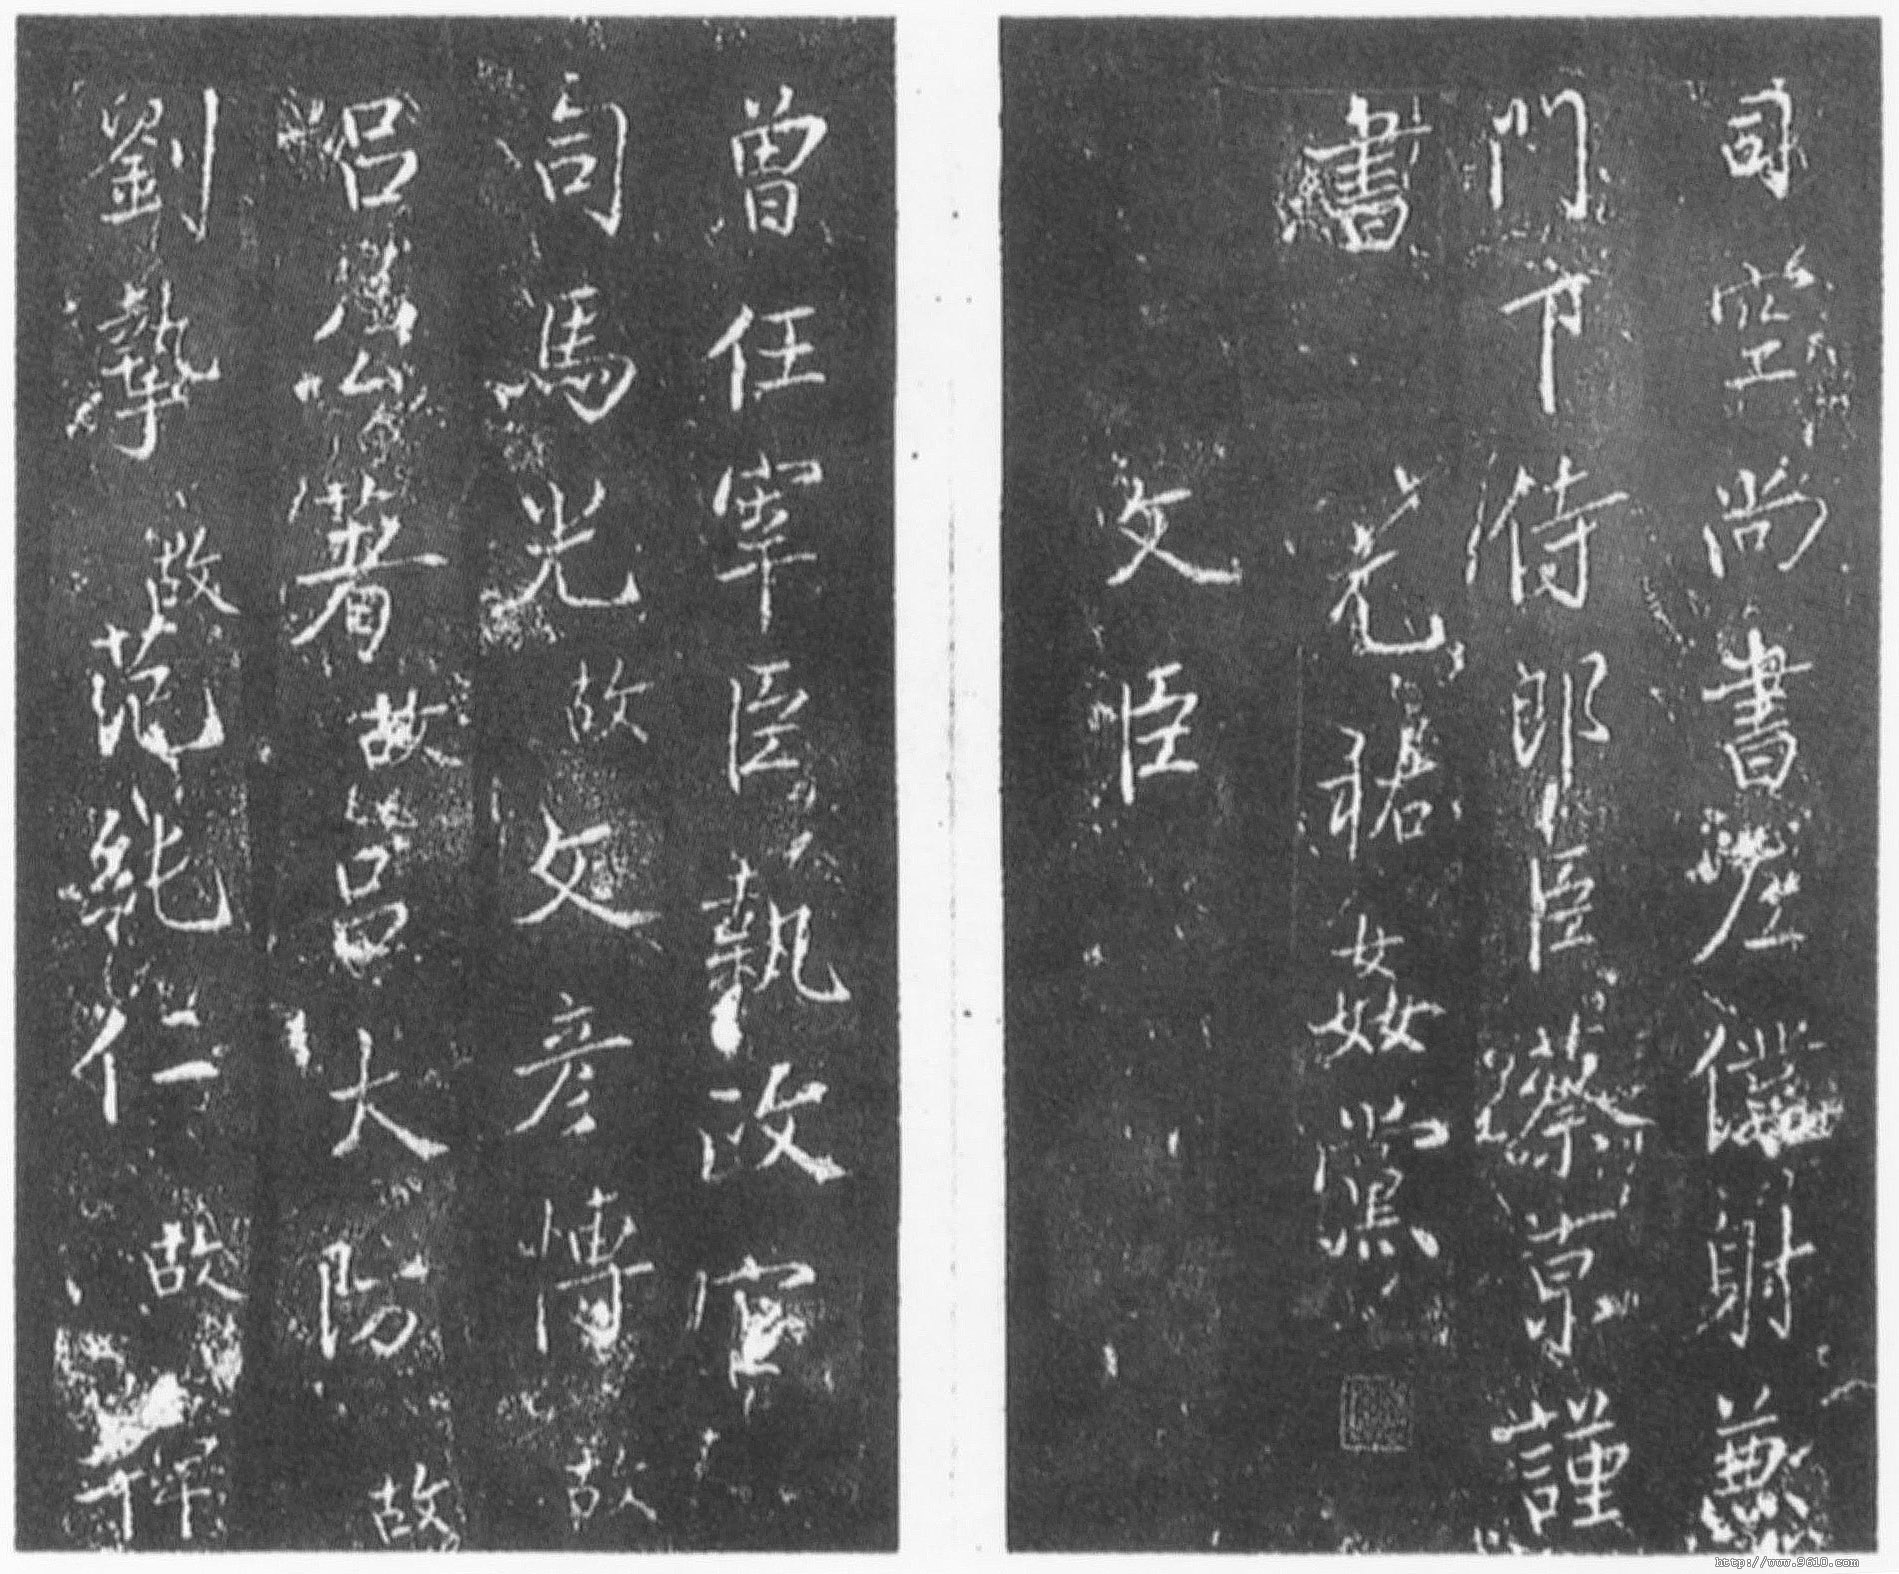 司空尚書左僕射兼
門下侍郎臣蔡京謹
書
元祐姦黨
文臣
曾任宰臣執政官
司馬光故文彥博故
呂公著故呂大防故
劉摯故范純仁故
http://www.9610.com